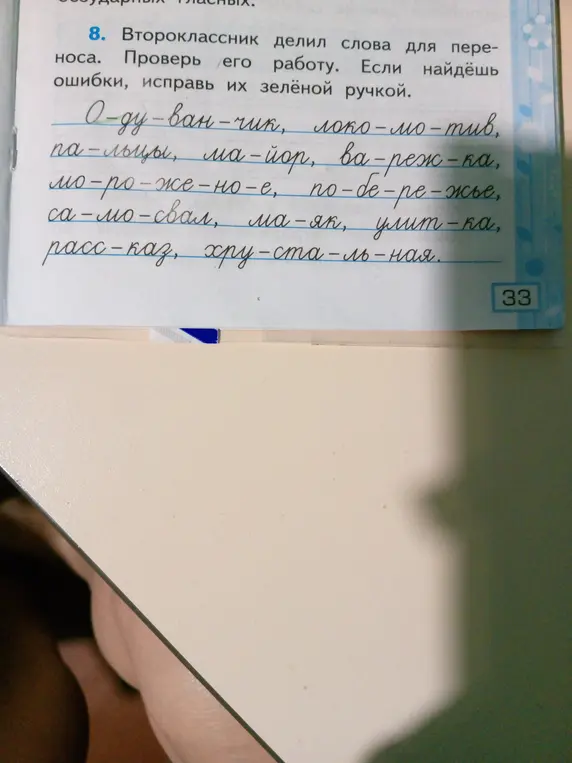 безударных гласных.
8. Второклассник делил слова для пере-
носа. Проверь его работу. Если найдёшь
ошибки, исправь их зелёной ручкой.
О-ду-ван-чик, локо-мо-тив,
па-льцы, ма-йор, ва-реж-ка,
мо-ро-же-но-е, по-бе-ре-жье,
са-мо-свал, ма-як, улит-ка,
расс-каз, хру-ста-ль-ная.
33